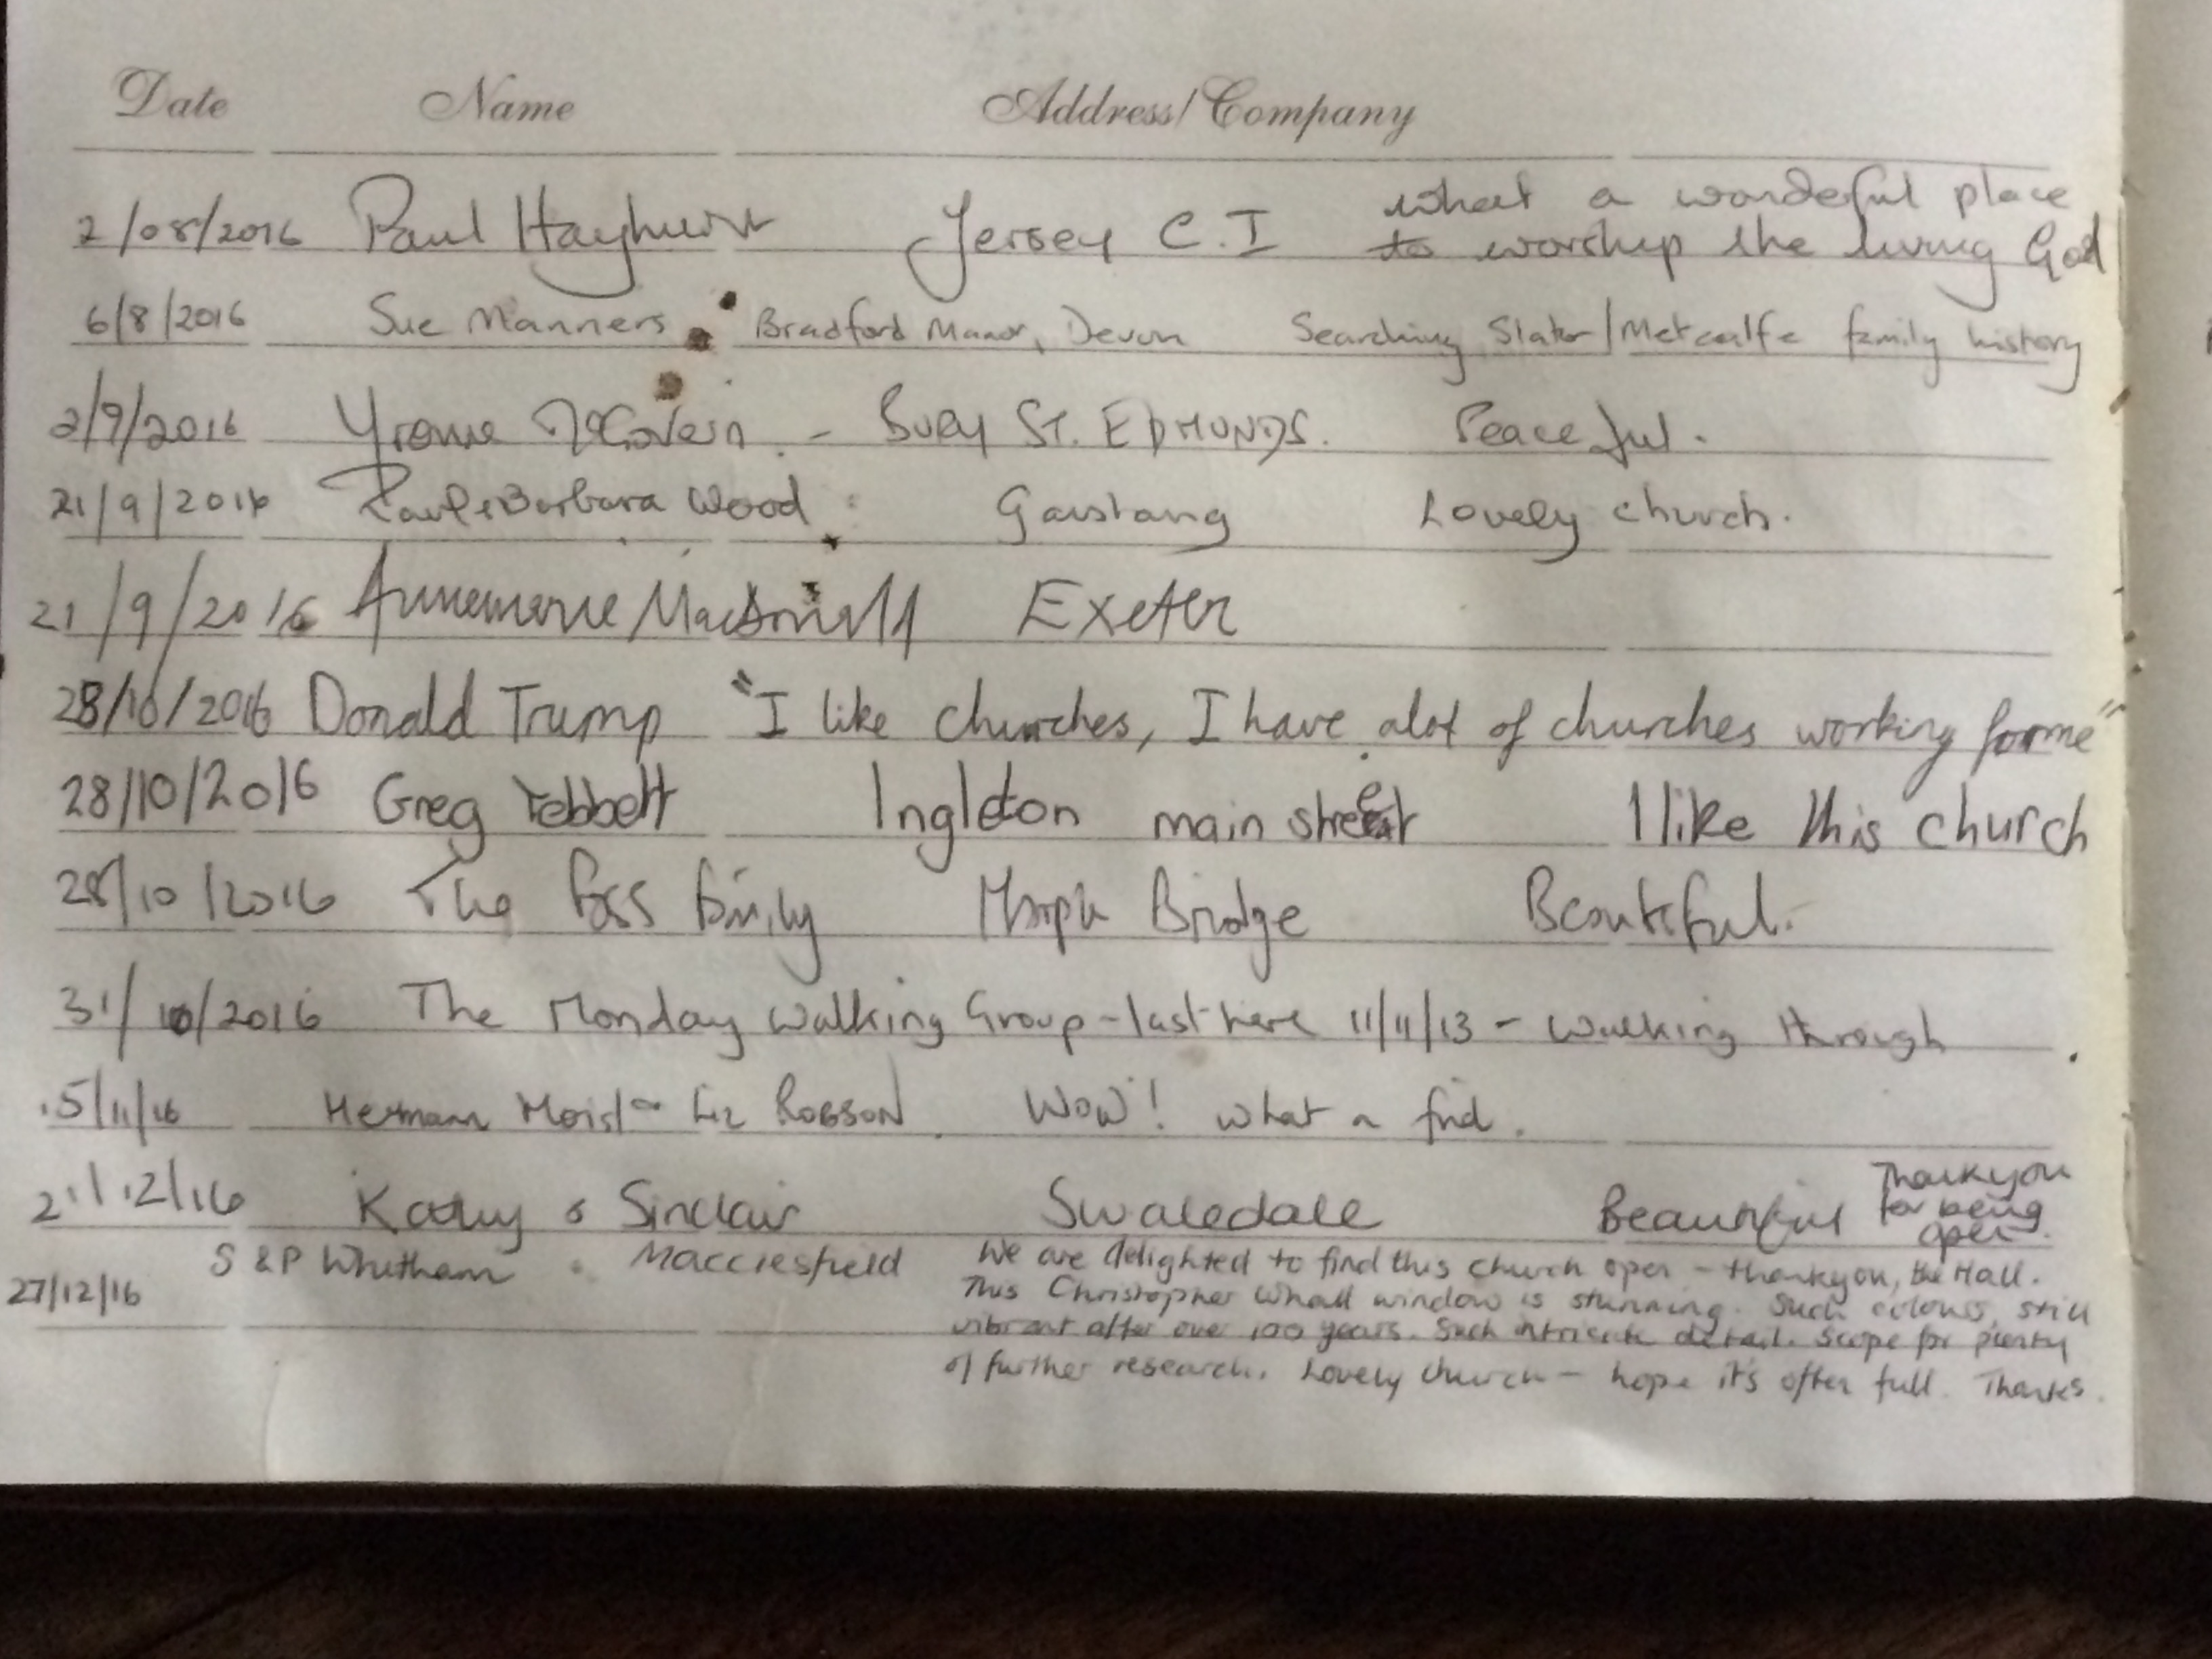 Date Name Address/Company
2/08/2016 Paul Hayhurst Jersey C.I what a wonderful place
to worship the living God
6/8/2016 Sue Manners Bradford Manor, Devon Searching Slater/Metcalfe family history
2/9/2016 Yvonne McGovern - BURY ST. EDMUNDS. Peaceful.
21/9/2016 Paul & Barbara Wood Garstang Lovely church.
21/9/2016 Annemarie Exeter
28/10/2016 Donald Trump "I like churches, I have alot of churches working for me"
28/10/2016 Greg Tebbett Ingleton main street I like this church
28/10/2016 The family Bridge Beautiful.
31/10/2016 The Monday Walking Group - last here 11/11/13 - walking through
15/11/16 Hermann & Liz ROBSON. WOW! what a find.
21/12/16 Kathy & Sinclair Swaledale Beautiful Thankyou
for being
open.
27/12/16 S & P Whitham Macclesfield We are delighted to find this church open - thankyou, the Hall.
This Christopher Whall window is stunning. Such colours, still
vibrant after over 100 years. Such intricate detail. Scope for plenty
of further research. Lovely church - hope it's often full. Thanks.